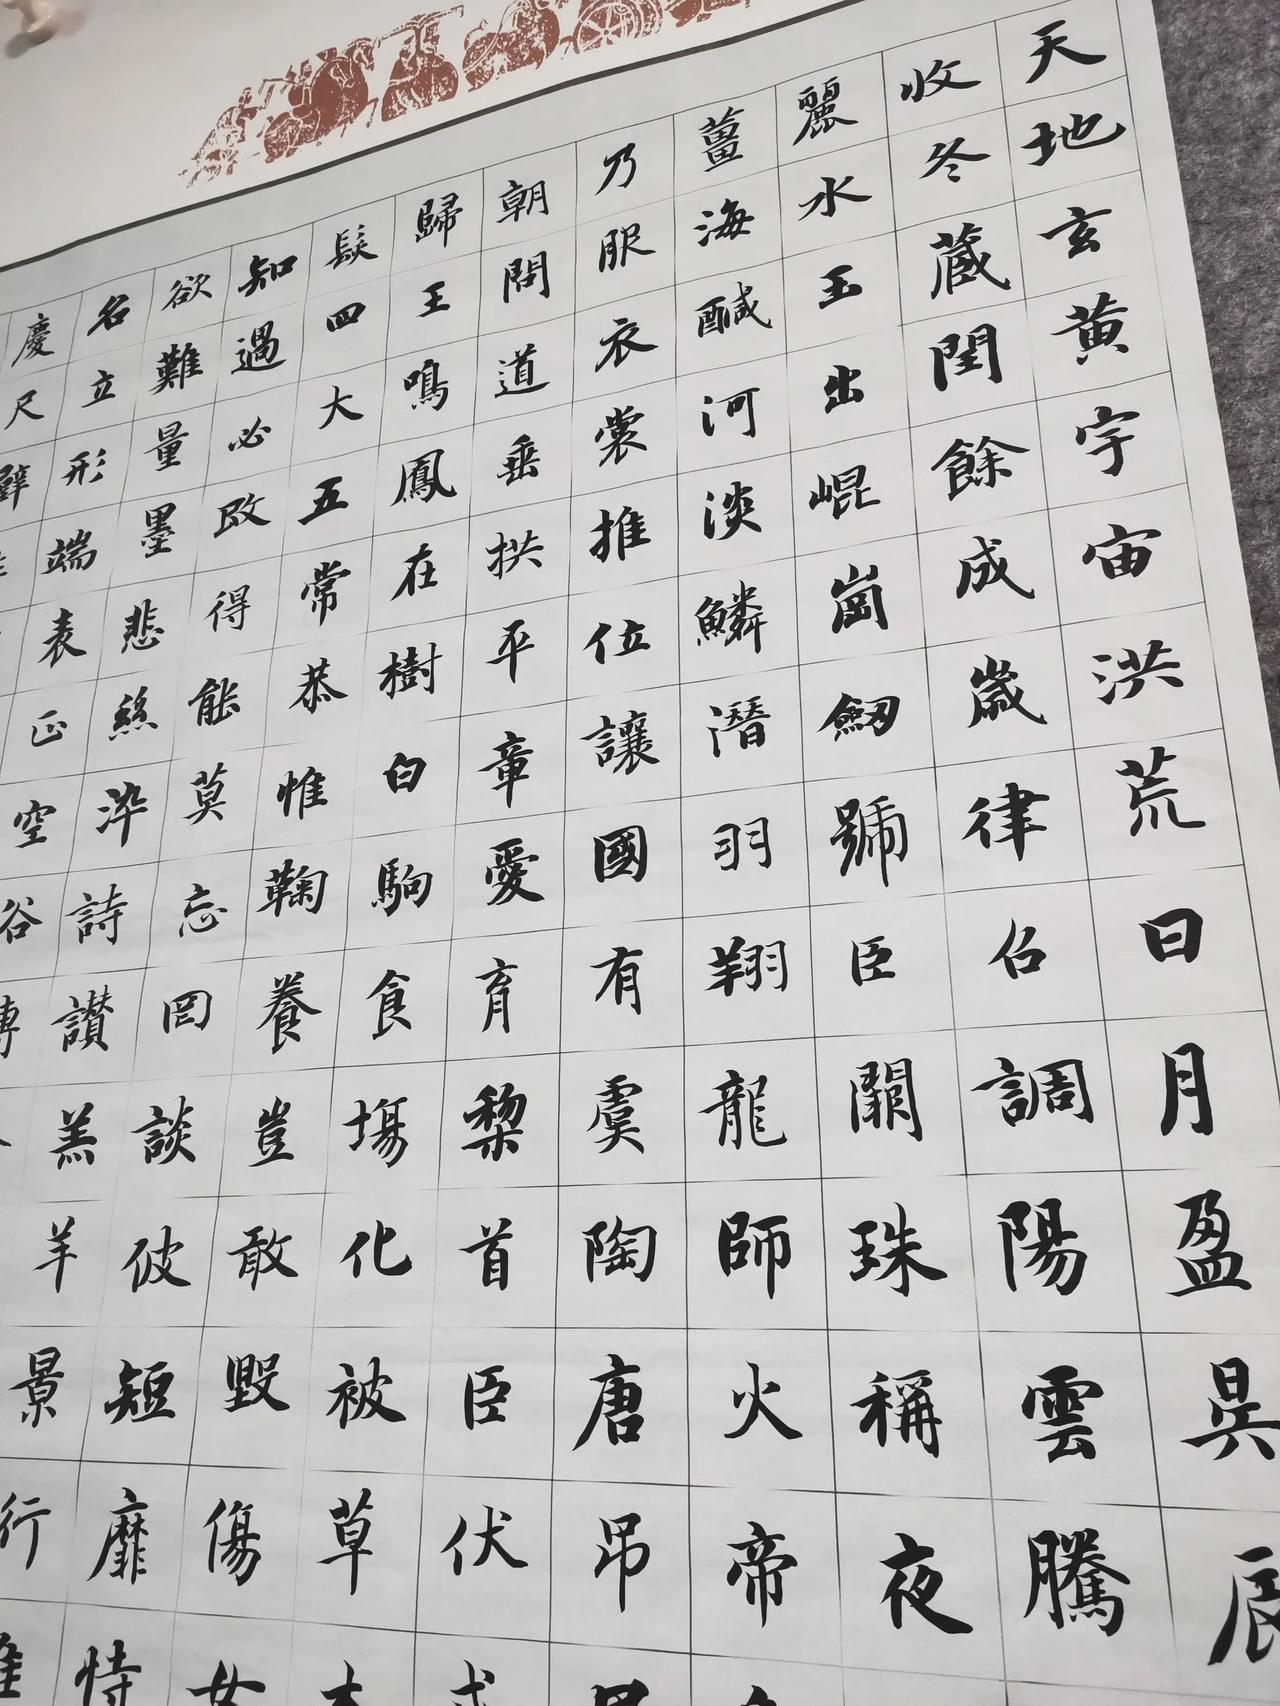 天地玄黄宇宙洪荒日月盈昃辰
收冬蔵閏餘成歲律召調陽雲騰
麗水玉出崐崗劒號臣闕珠稱夜
薑海鹹河淡鱗潛羽翔龍師火帝
乃服衣裳推位讓國有虞陶唐吊
朝問道垂拱平章愛育黎首臣伏
歸王鳴鳳在樹白駒食場化被草
髮四大五常恭惟鞠養豈敢毀傷女
知過必改得能莫忘罔談彼短靡恃
欲難量墨悲絲染詩讚羔羊景行
名立形端表正空谷
慶尺璧